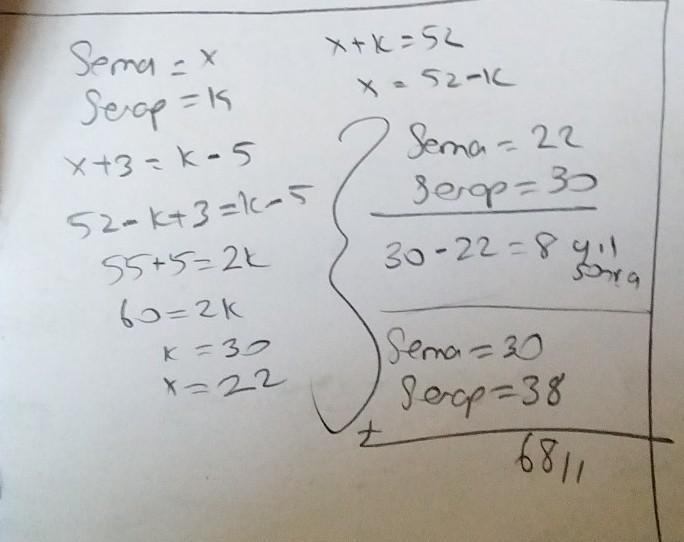 Sema = x
Serap = k
x+3 = k-5
52-k+3=k-5
55+5=2k
60=2k
k = 30
x = 22
x+k=52
x = 52-k
Sema = 22
Serap = 30
30-22=8 yıl
sonra
Sema = 30
Serap = 38
+
68//